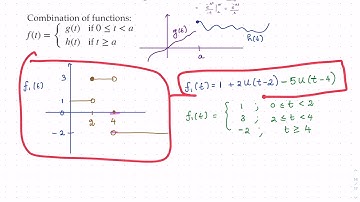 Combination of functions:
f(t) = { g(t) if 0 ≤ t < a
h(t) if t ≥ a
g(t)
h(t)
a
f₁(t)
3
1
0
2
4
-2
f₁(t) = 1 + 2u(t-2) - 5u(t-4)
f₁(t) = { 1 ; 0 ≤ t < 2
3 ; 2 ≤ t < 4
-2 ; t ≥ 4